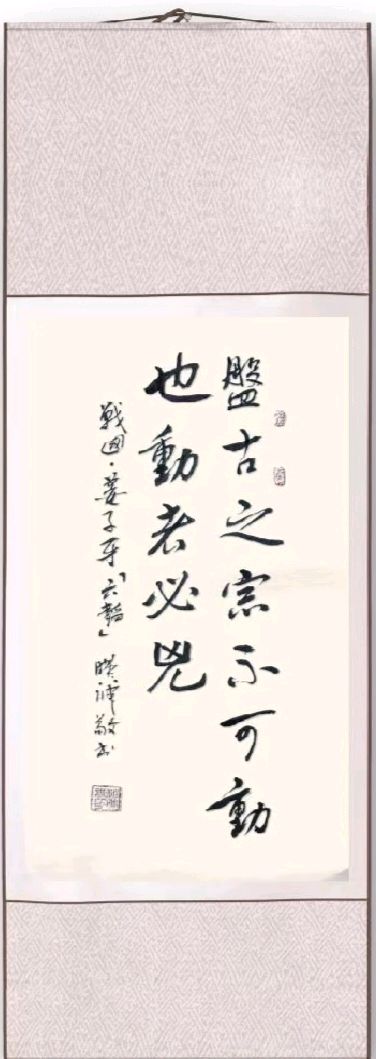 盤古之宗不可動
也動者必兇
戰國·姜子牙「六韜」 敬書